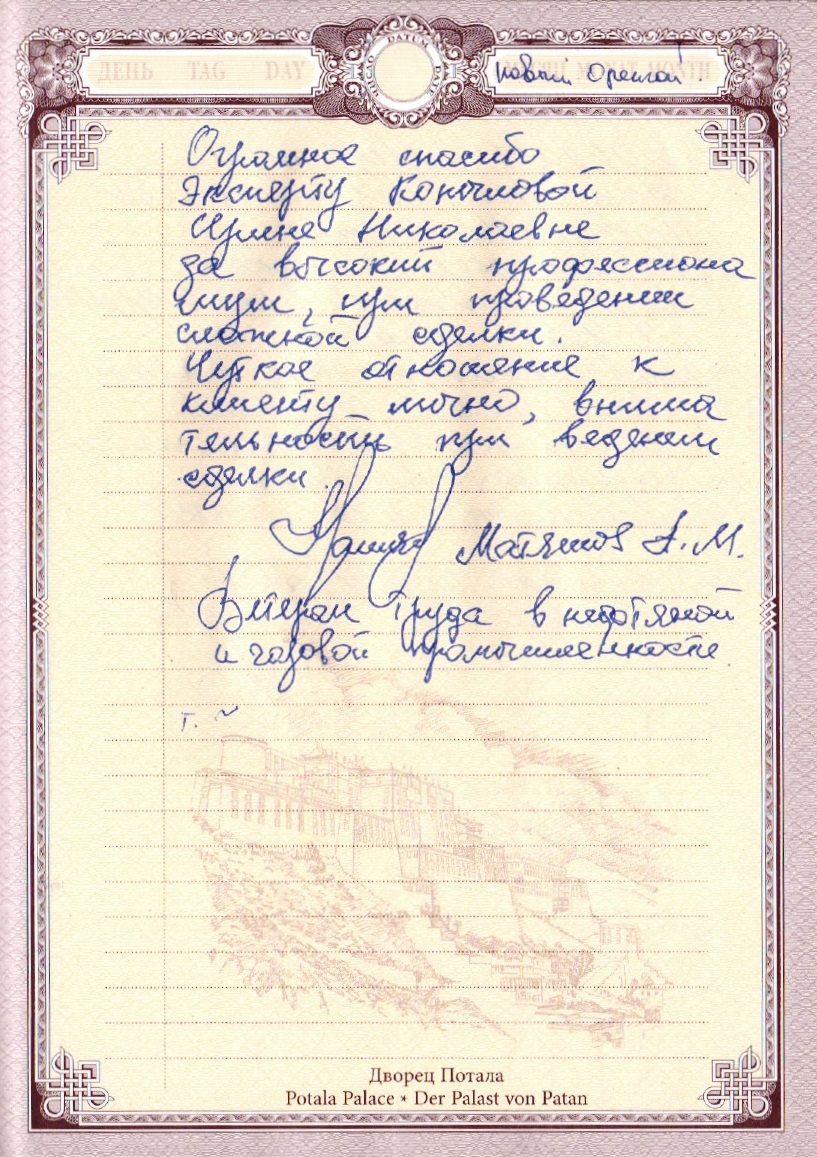 ДЕНЬ TAG DAY DATUM МЕСЯЦ MONAT MONTH
Новый
Огромное спасибо
Эксперту Копыловой
Ирине Николаевне
за высокий профессиона
лизм, при проведении
сложной сделки.
Чуткое отношение к
клиенту лично, внима
тельность при ведении
сделки.
Матяшов А.М.
Ветеран труда в нефтяной
и газовой промышленности
г.
Дворец Потала
Potala Palace * Der Palast von Patan